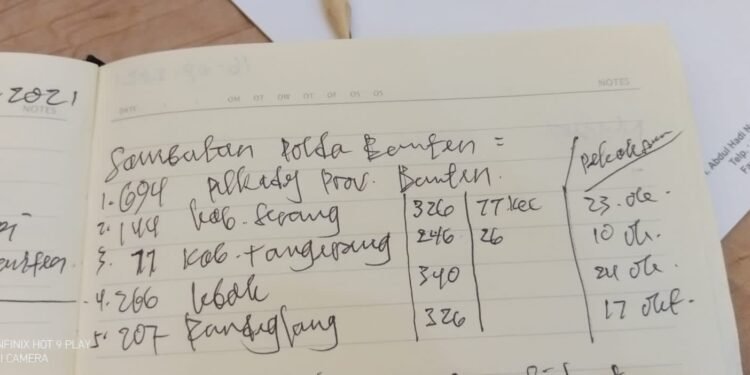 2021
NOTES
NOTES
DATE
Sambutan Polda Banten =
1. 694 Pilkades Prov. Banten.
Pelaksanaan
2. 144 Kab. Serang 326 77 Kec 23 Okt.
3. 77 Kab. Tangerang 246 26 10 Ok.
4. 266 Lebak 340 24 Ok.
5. 207 Pandeglang 326 17 Okt.
Abdul Hadi
Telp.
INFINIX HOT 9 PLAY
CAMERA